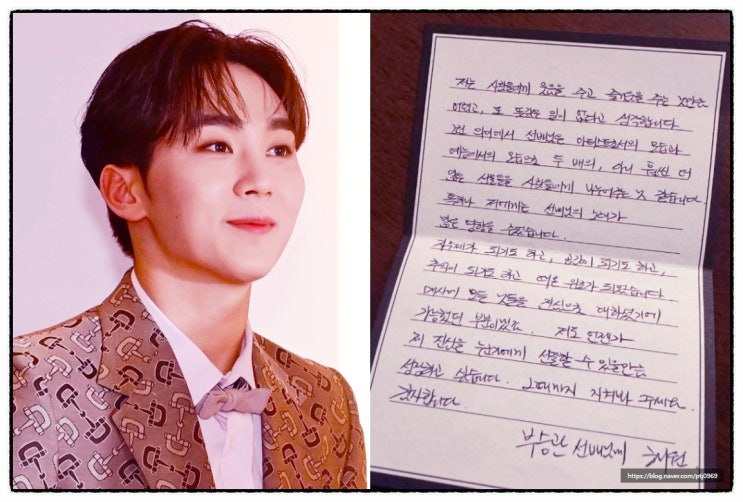 저는 사람들에게 웃음을 주고 즐거움을 주는 것만큼
어렵고, 또 뜻깊은 일이 없다고 생각합니다
그런 의미에서 선배님은 아티스트로서의 모습과
예능에서의 모습으로 두 배의, 아니 훨씬 더
많은 선물들을 사람들에게 나눠주는 것 같습니다.
특히나 저에게는 선배님의 노래가
많은 영향을 주었습니다.
자극제가 되기도 하고, 공감이 되기도 하고,
추억이 되기도 하고 때론 위로가 되었습니다
매사에 모든 것들을 진심으로 대하셨기에
가능했던 부분이겠죠. 저도 언젠가
제 진심을 누군가에게 선물할 수 있을만큼
성장하고 싶습니다. 그때까지 지켜봐 주세요.
감사합니다.
부승관 선배님께
https://blog.naver.com/ptj0969